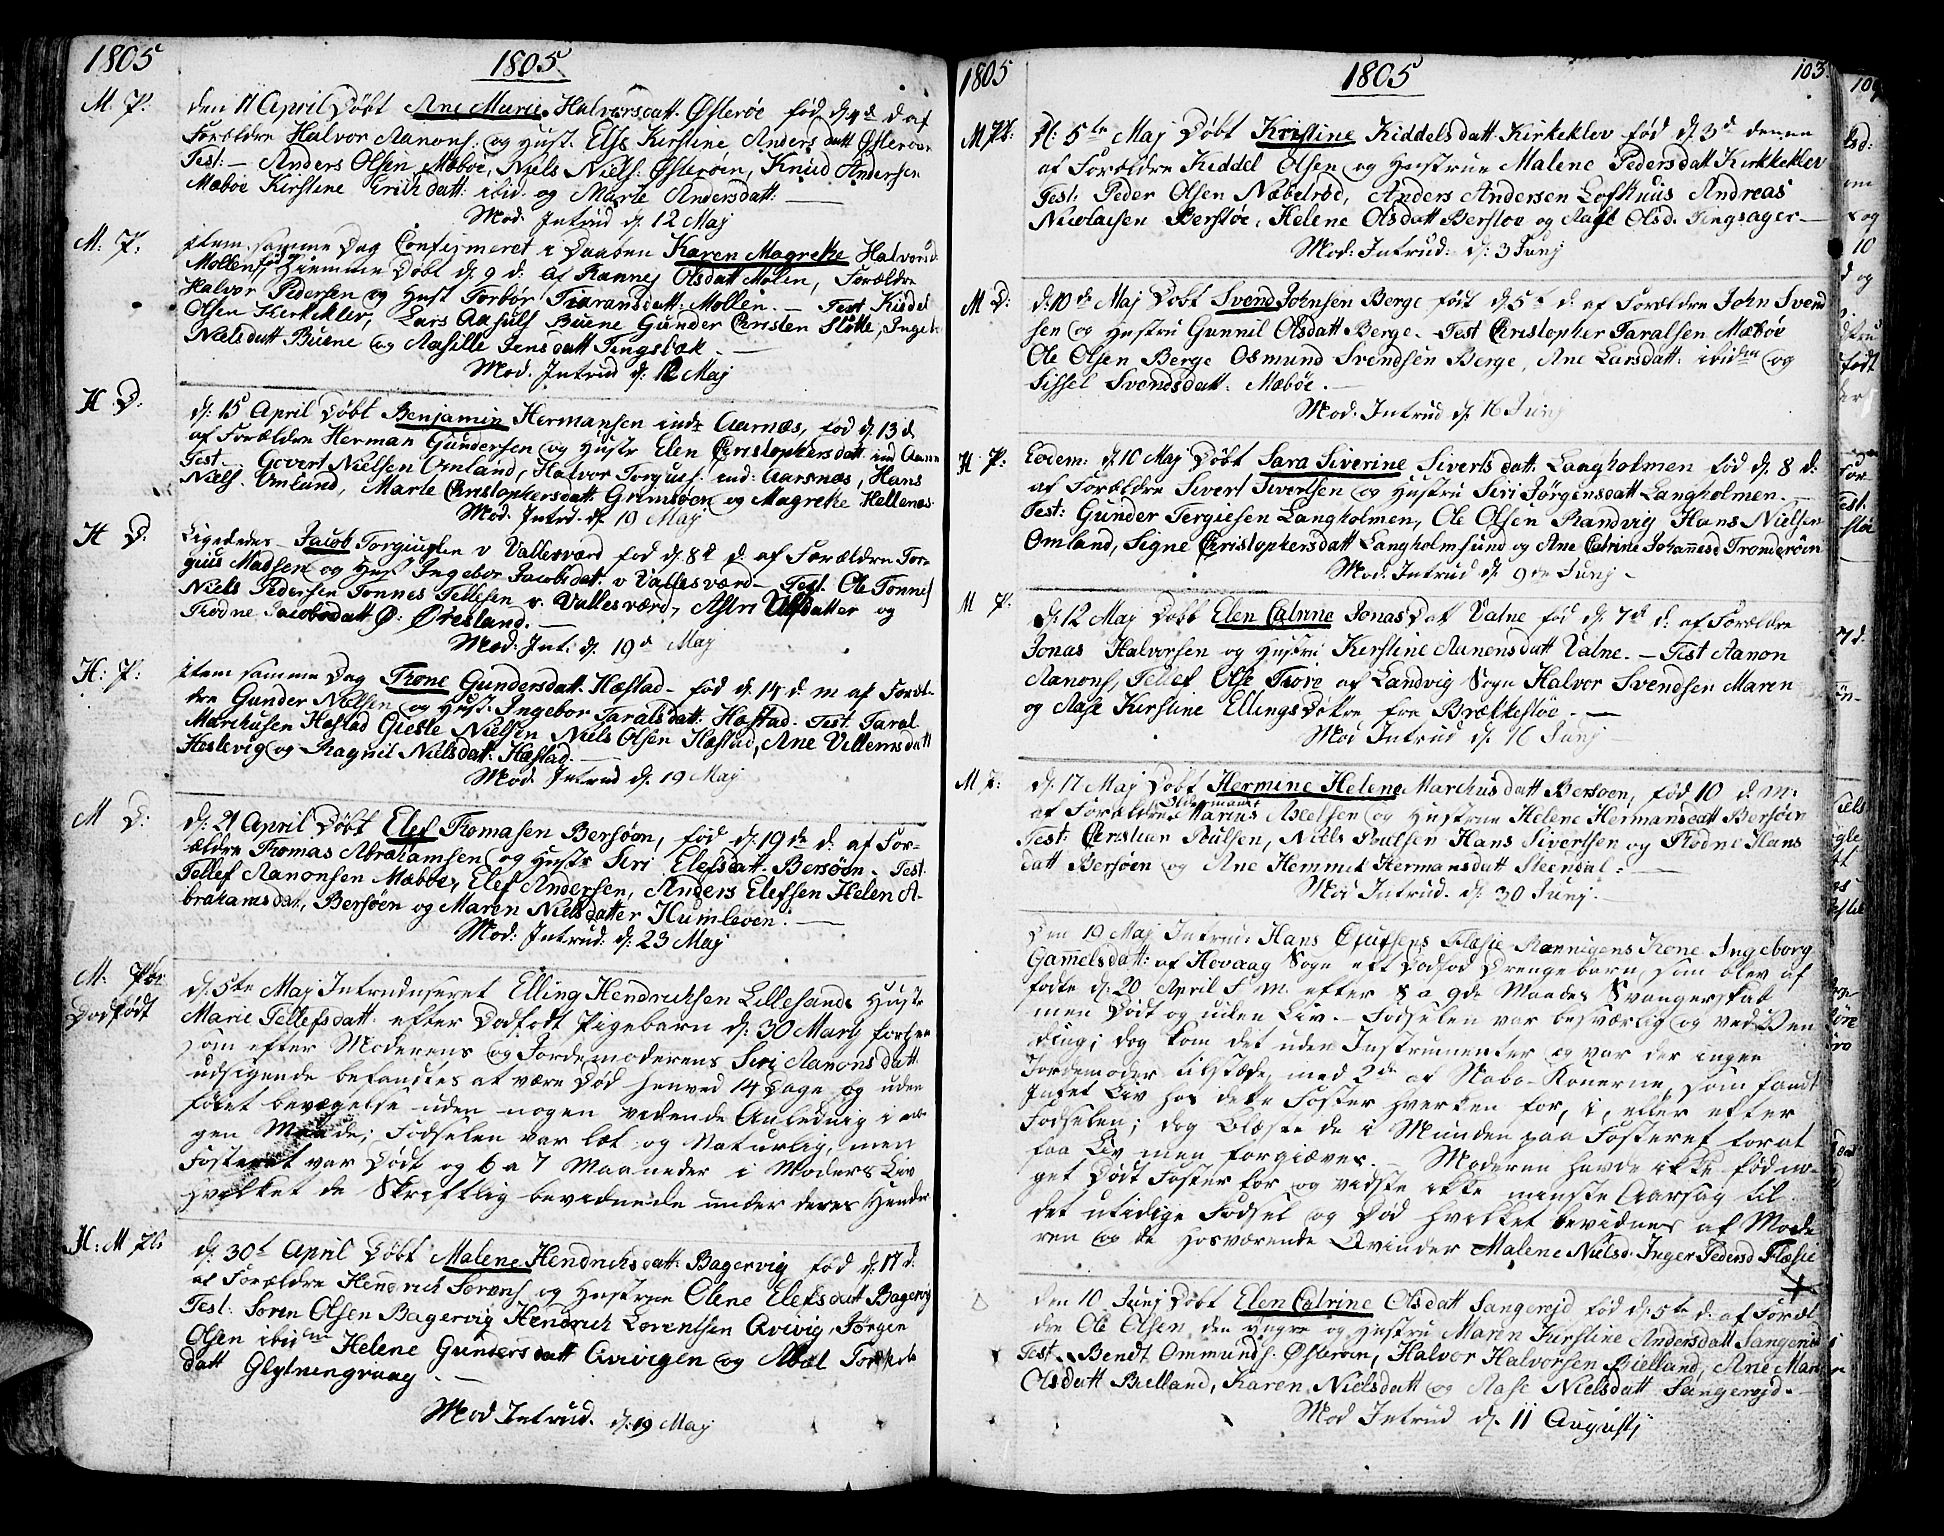 1805
1805
M. P.
den 11 April Døbt Ane Marie Halvorsdatt. Østerøe fød d. 4de d. af
Forældre Halvor Aanons. og Hust. Else Kirstine Andersdatt Østerøe
Test: Anders Olsen Mæbøe, Niels Niels: Østerøen, Knud Andersen
Mæbøe Kirstine Erichsdatt: ibid: og Marte Andersdatt:
Mod. Intrud d. 12 Maj
M: P.
item samme Dag Confirmeret i Daaben Karen Magrete Halvorsd:
Mollen, Hiemme Døbt d. 9 d: af Rannej Olsdatt Molen, Forældre
Halvor Pedersen og Hust Torbør Taransdatt: Mollen. Test Kiddel
Olsen Kirkekler, Lars Aasulf Buene Gunder Christen Slotte, Ingeb
Nielsdatt Buene og Aasille Jensdatt Tingsbæk.
Mod. Intrud d. 12 Maj
H D:
d: 15 April Døbt Benjamin Hermansen inde Aarnæs, fød d. 13 d
af Forældre Herman Gundersen og Hustr Elen Christophersdatt. ind Aarn
Test. Govert Nielsen Omland, Halvor Torgius: ind: Aarsnæs, Hans
Niels. Omland, Marte Christophersdatt Grimsøen og Magrete Hellenes
Mod. Intrd. d. 19 Maj
H D:
Ligeledes Jacob Torgiusen v Vallesværd fød d. 8d d. af Forældre Tor-
gius Madsen og Hust Ingebor Jacobsdat: v Vallesværd Test: Ole Tonnes
Niels Pedersen Tonnes Tellesen v. Vallesværd, Astri Ulfsdatter og
Trødne Jacobsdatt Ø: Øvesland.
Mod: Int: d. 19d Maj
H: P.
item samme Dag Trone Gundersdatt. Hæstad fød d. 14 d m af Foræl-
dre Gunder Nielsen og Hust: Ingebor Taralsdatt: Hæstad. Test. Taral
Marchusen Hæstad Gieste Nielsen Niels Olsen Hæstad, Ane Villemsdatt
Heslevig og Ragnil Nielsdat: Hæstad.
Mod. Intrud d. 19 Maj
M D:
d: 21 April Døbt Elef Tromasen Bersøen, fød d. 19de d. af For-
ældre Tromas Abrahamsen og Hustr Siri Elefsdatt. Bersøen. Test.
Tellef Aanonsen Mæbøe, Elef Andersen, Anders Elefsen Helen A-
brahamsdat, Bersøen og Maren Nielsdatter Humleven.
Mod: Intrud: d. 23 Maj
M: Pør
Dødfødt
d: 5te Maj Intruduseret Elling Hendrichsen Lillesands Hustr
Marie Tellefsdatt. efter Dødfødt Pigebarn d: 30 Marty
som efter Moderens og Jordemoderens Siri Aanonsdatt
udsigende befandtes at være Død henved 14 Dage og uden
følet bevægelse uden nogen vedende Anledning i no-
gen Maade; Fødselen var let og Naturlig, men
Fosteret var Dødt og 6 a 7 Maaneder i Moders Liv
hvilket de Skriftlig bevidnede under deres Hender
H: M Pl:
d: 30t April Døbt Malene Hendrichsdatt: Bagervig fød d. 17 d.
af Forældre Hendrich Sørens. og Hustrue Olene Elefsdatt Bagervig
Test: Søren Olsen Bagervig Hendrich Lorentsen Qvivig, Jørgen
Olsen ibidem Helene Gundersdatt Qvivigen og Abel
datt Glytningvaag.
Mod Intrud. d: 19 Maj
1805
1805
103.
M Pl:
d: 5te Maj Døbt Kristine Kiddelsdatt. Kirkeklev fød d. 3d denne
af Forældre Kiddel Olsen og Hustrue Malene Pedersdatt Kirkeklev
Test: Peder Olsen Næbelrøe, Anders Andersen Lofthuus Andreas
Nicolaisen Berstøe, Helene Olsdatt Berstøe og Aase Olsd. Tingsager
Mod: Intrud: d: 3 Junj
M D:
d: 10de Maj Døbt Svend Johnsen Berge født d. 5t d. af Forældre John Svend
sen og Hustru Gunnil Olsdatt Berge. Test Christopher Taralsen Mæbøe
Ole Olsen Berge Osmund Svendsen Berge, Ane Larsdatt: ibidem og
Sissel Svendsdatt: Mæbøe.
Mod: Intrud d. 16 Junj
H P:
Eodem: d. 10 Maj Døbt Sara Siverine Sivertsdatt. Langholmen fød d. 8 d:
af Forældre Sivert Sivertsen og Hustru Siri Jørgensdatt Langholmen.
Test: Gunder Tergiesen Langholmen, Ole Olsen Randvig Hans Nielsen
Omland, Signe Christophersdatt Langholmsund og Ane Catrine Johannesd Tronderøen
Mod: Intrud d. 9de Junj
M P.
d. 12 Maj Døbt Elen Catrine Jonas Dat Valne fød d. 7d d. af Forældre
Jonas Halvorsen og Hustri Kirstine Aanensdatt Valne. Test Aanon
Aanons, Tellef Olse Trore af Landvig Sogn Halvor Svendsen Maren
og Aase Kirstine Ellings Døtre fra Brækkestøe.
Mod Intrud d. 16 Junj
M P:
d. 17 Maj Døbt Hermine Helene Marchusdatt Bersøen, fød 10 d. M:
af Forældre Marius Axelsen og Hustrue Helene Hermansdatt Bersøen
Test: Christian Poulsen, Niels Poulsen Hans Sivertsen og Trødne Hans
datt Bersøen og Ane Hemmit Hermansdatt Steendal:
Mod Intrud. d: 30 Junj.
Den 19 Maj Intrud: Hans Flasie Rannigens Kone Ingeborg
Gamelsdatt: af Hovaag Sogn eft Dødfød Drengebarn, som blev af
fødte d: 20 April f. m. efter 8 a 9de Maaneds Svangerskab
men Dødt og uden Liv. Fødselen var besværlig og ved Ven
ding; dog kom det uden Instrumenter og var der ingen
Jordemoder tilstæde, med 2de af Nabo-Konerne, som fandt
Intet Liv hos dette Foster hverken for, i, eller efter
Fødselen; dog blæste de i Munden paa Fosteret for at
faa Liv men forgiæves. Moderen havde ikke fød no-
get Dødt Foster før og vidste ikke mindste Aarsag til
det utidige Fødsel og Død hvilket bevidnes af Mode
ren og de hosværende Qvinder Malene Nielsd. Inger Pedersd Flasie
Den 10 Junj Døbt Elen Catrine Olsdatt Sangerejd fød d. 5te d. af Foræl
dre Ole Olsen den yngre og Hustru Maren Kirstine Andersdatt Sangereid
Test. Bendt Ommunds. Østerøen, Halvor Halvorsen Bielland, Ane Mari
Olsdatt Bielland, Karen Nielsdatt og Aase Nielsdatt Sangerejd.
Mod Intrud d. 11 Augustj